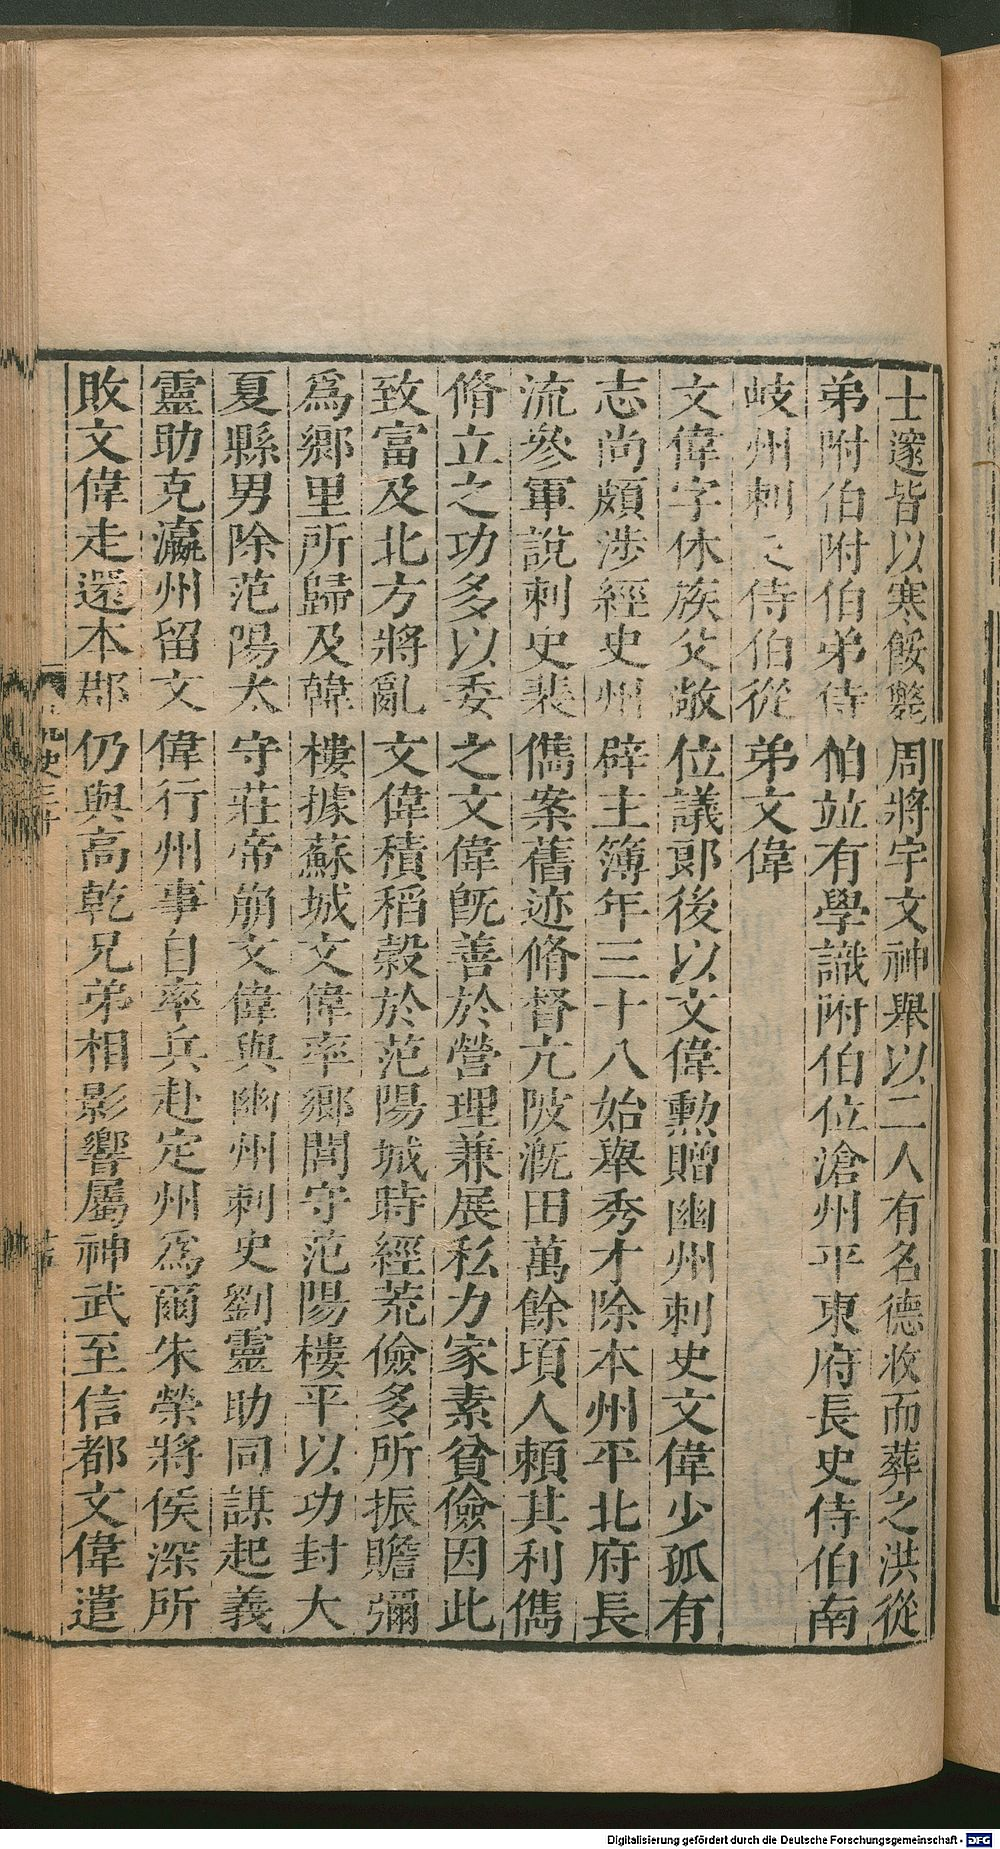 士邃皆以寒餒斃周將宇文神舉以二人有名德收而葬之洪從
弟附伯附伯弟侍伯竝有學識附伯位滄州平東府長史侍伯南
岐州刺史侍伯從弟文偉
文偉字休族父敞位議郎後以文偉勲贈幽州刺史文偉少孤有
志尚頗涉經史州辟主簿年三十八始舉秀才除本州平北府長
流參軍說刺史裴儁案舊迹脩督亢陂漑田萬餘頃人賴其利儁
脩立之功多以委之文偉旣善於營理兼展私力家素貧儉因此
致富及北方將亂文偉積稻榖於范陽城時經荒儉多所振贍彌
爲鄉里所歸及韓樓據蘇城文偉率鄉閭守范陽樓平以功封大
夏縣男除范陽太守莊帝崩文偉與幽州刺史劉靈助同謀起義
靈助克瀛州留文偉行州事自率兵赴定州爲爾朱榮將侯深所
敗文偉走還本郡仍與高乾兄弟相影響屬神武至信都文偉遣
Digitalisierung gefördert durch die Deutsche Forschungsgemeinschaft - DFG